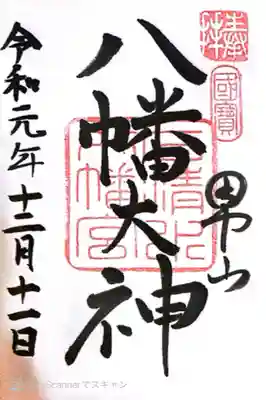 奉拝
國寶
男山
八幡大神
石清水
八幡宮
令和元年十二月十一日
Scannerでスキャン